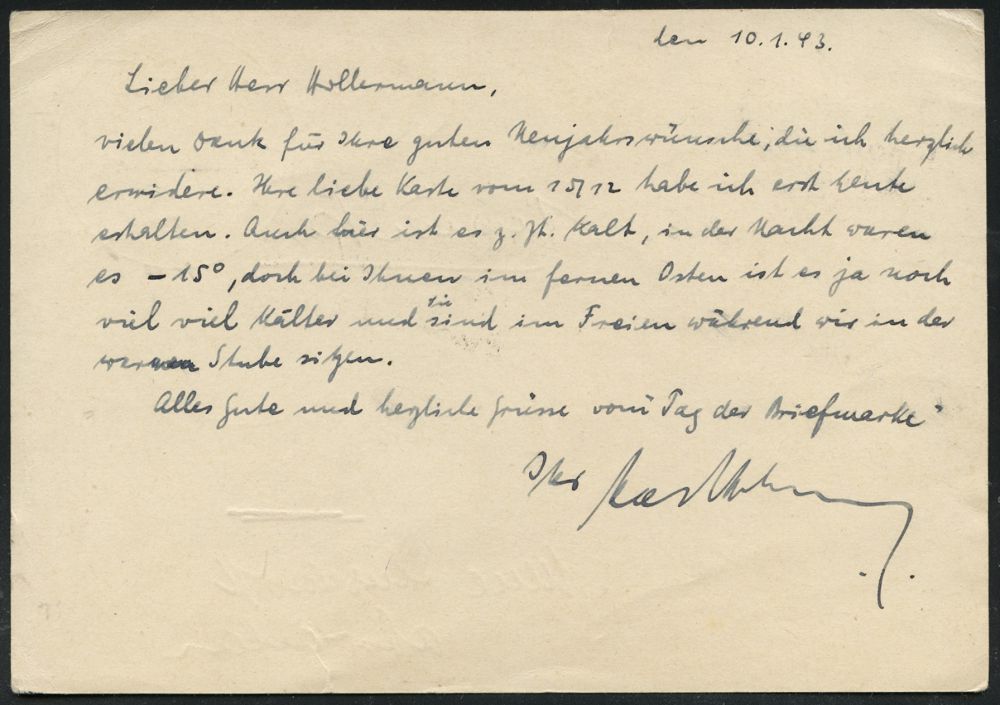 den 10.1.43.
Lieber Herr Hollermann,
vielen Dank für Ihre guten Neujahrswünsche, die ich herzlich
erwidere. Ihre liebe Karte vom 15/12 habe ich erst heute
erhalten. Auch hier ist es z. Zt. kalt, in der Nacht waren
es -15°, doch bei Ihnen im fernen Osten ist es ja noch
viel viel kälter und sie sind im Freien während wir in der
warmen Stube sitzen.
Alles Gute und herzliche Grüsse vom "Tag der Briefmarke"
Ihr